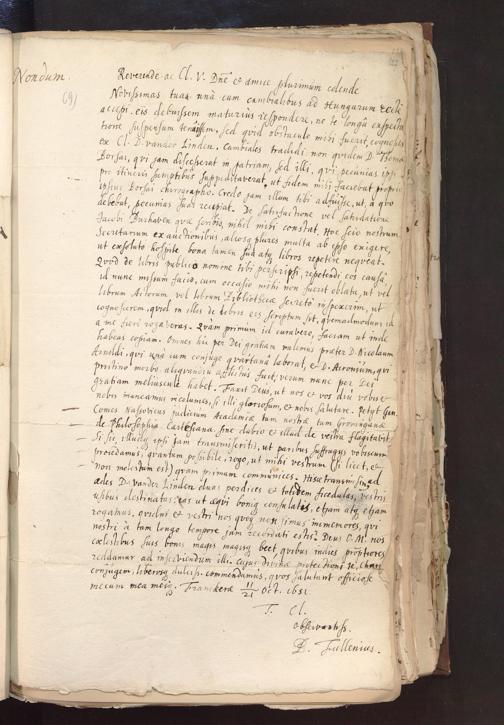 Nondum.
69)
Reverende ac Cl. V. Dne et amice plurimum colende
Novissimas tuas unà cum cambialibus ad Hungarum recte
accepi. eis debuissem maturius respondere, ne te longâ exspecta
tione suspensum tenuissem, sed quid obstaculo mihi fuerit, cognosces
ex Cl. D. vander Linden. Cambiales tradidi non quidem D.
Borsai, qui jam discesserat in patriam, sed illi, qui pecunias ipsi
pro itineris sumptibus suppeditaverat, ut fidem mihi faciebat proprio
ipsius Borsai chirographo. Credo jam illum tibi adfuisse, ut, a quo
debebat, pecunias suas recipiat. De satisfactione vel satisdatione
Jacobi quæ scribis, nihil mihi constat. Hoc scio nostrum
Secretarium ex auctionibus, aliosq plures multa ab ipso exigere,
ut exsoluto hospite bona tamen sua atq libros repetere nequeat.
Quod de libris publico nomine tibi perscripsi, repetendi eos causâ,
id nunc missum facio, cum occasio mihi non fuerit oblata, ut vel
librum Actorum vel librum Bibliothecæ secretò inspexerim, ut
cognoscerem, quid in illis de libris eis scriptum sit, quemadmodum id
a me fieri rogaveras. Quàm primum id curavero, faciam ut inde
habeas copiam. Omnes hic per Dei gratiam valemus præter D. Nicolaum
Arnoldi, qui unà cum conjuge quartanâ laborat, et D.
pristino morbo aliquandiu afflictus fuit, verum nunc per Dei
gratiam meliuscule habet. Faxit Deus, ut nos et vos diu vobis et
nobis maneamus incolumes, si illi gloriosum, et nobis salutare. Petyt Gen.
Comes Nassovicus judicium Academiæ tam nostræ tam Groninganæ
de Philosophia Cartesiana. sine dubio et illud de vestra flagitabit.
Si sic, illudq ipsi jam transmiseritis, ut paribus suffragys vobiscum
procedamus, quantum possibile, rogo, ut mihi vestrum (si licet, et
non molestum est) quam primum communices. Hisce transmisi ad
ædes D. vander Linden duas perdices et totidem ficedulas, vestris
usibus destinatas. eas ut æqui boniq consulatis, etjam atq etjam
rogamus, quidni et vestri nos quoq non simus immemores, qui
nostri à tam longo tempore jam recordati estis? Deus O. M. nos
cælestibus suis bonis magis magisq beet, quibus indies promtiores
reddamur ad inserviendum illi. Cujus divinæ protectioni te, charam
conjugem, liberosq dulciss. commendamus, quos salutant officiose
mecum mea meiq. Franekeræ 11/21 Oct. 1651
T. Cl.
observantiss.
Fullenius.